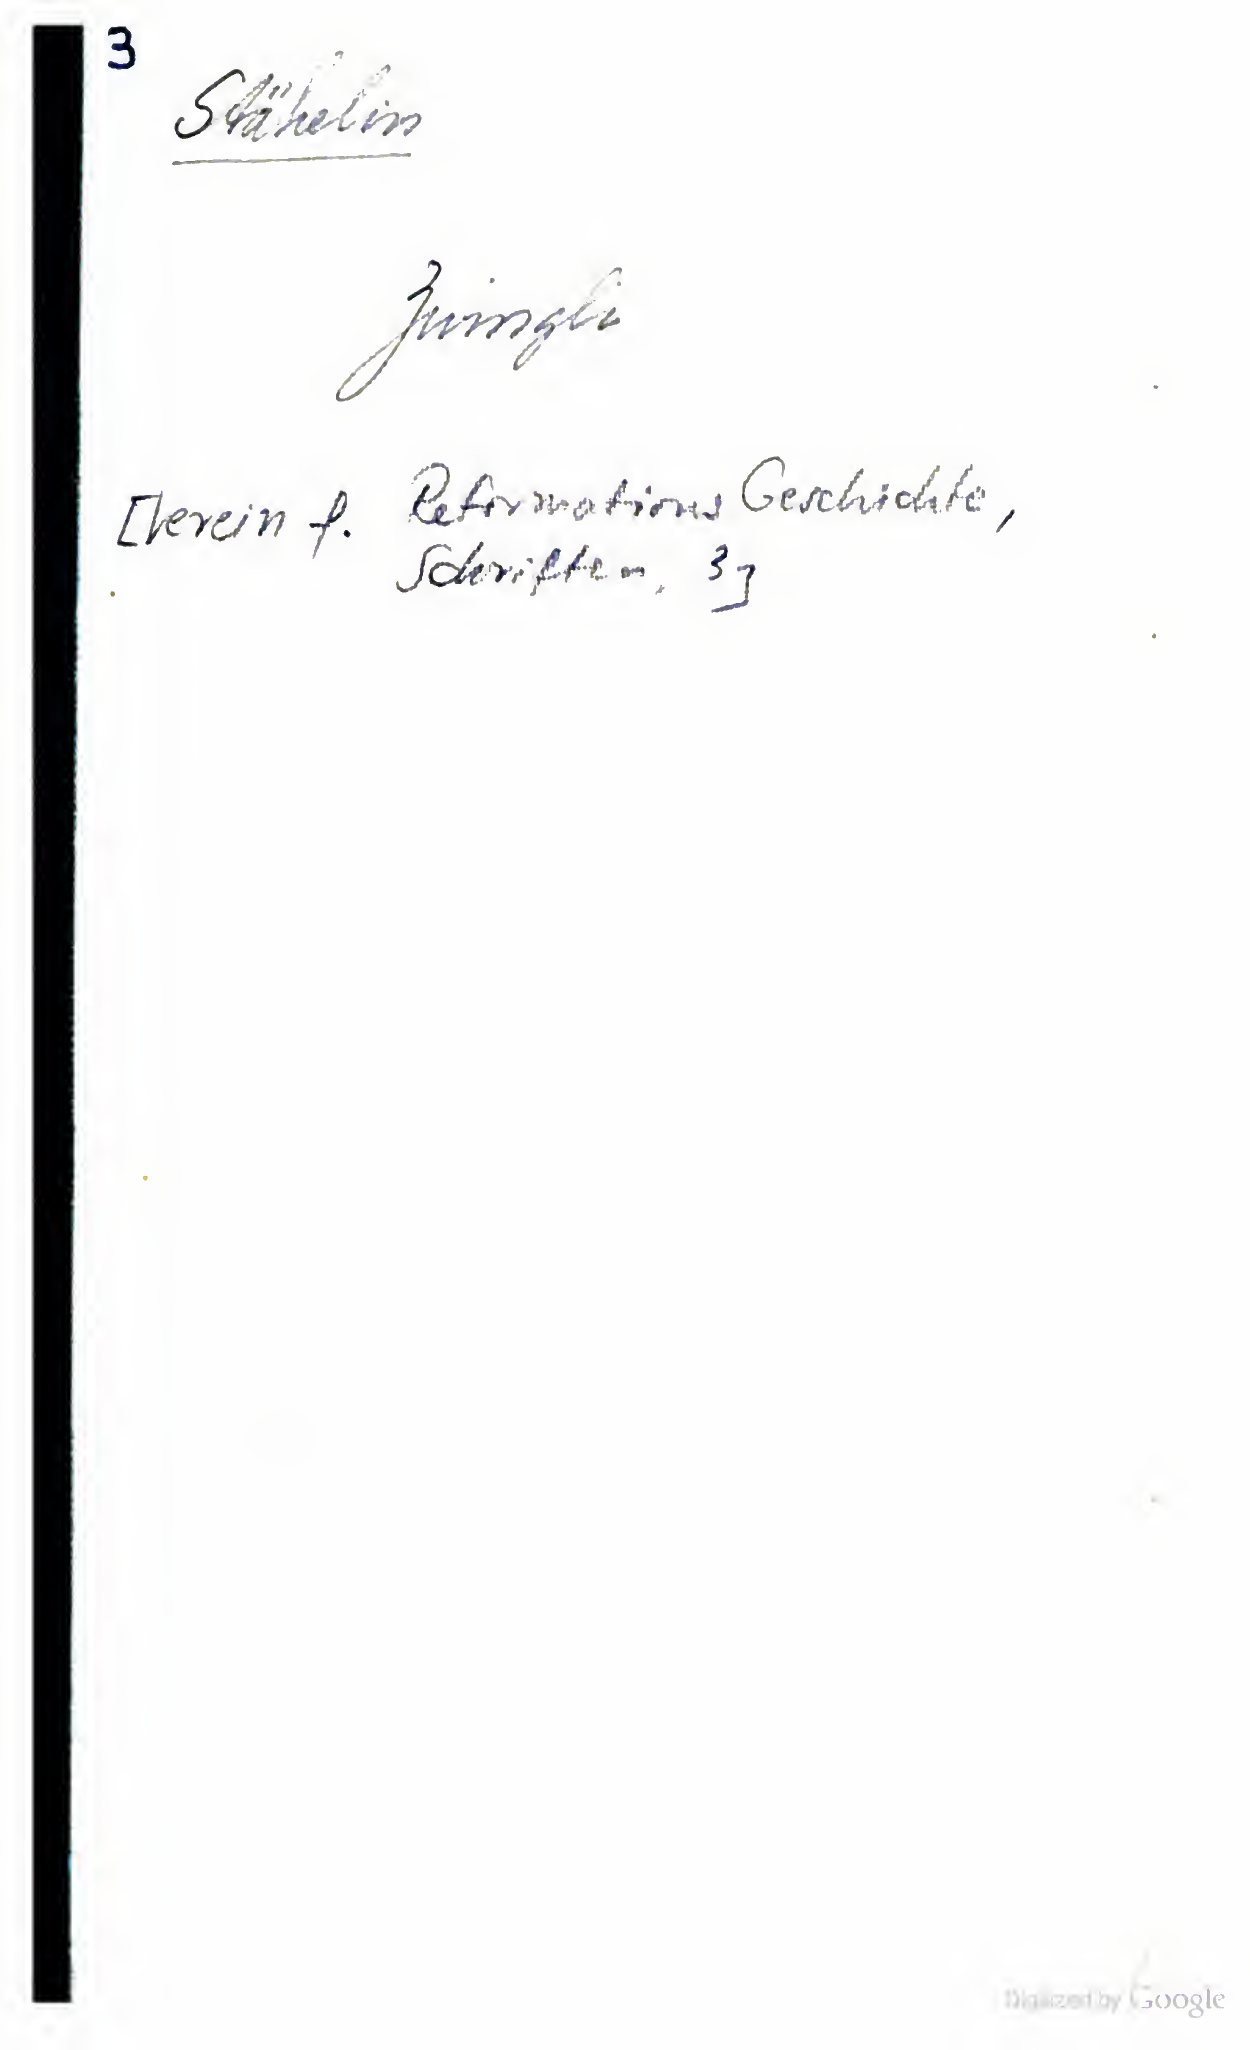 3
Stähelin
Zwingli
[Verein f. Reformations Geschichte,
Schriften, 3]
Digitized by Google